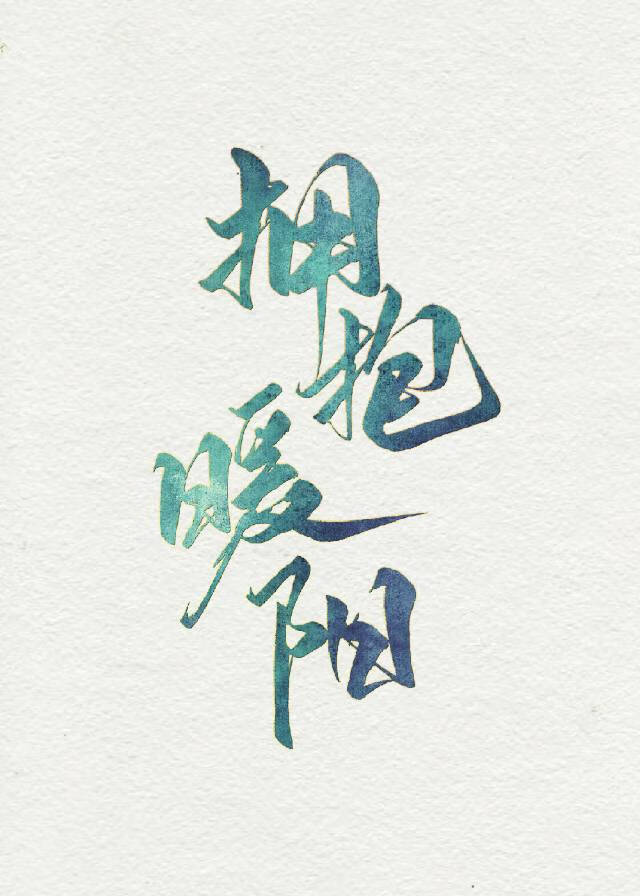 拥抱
暖阳